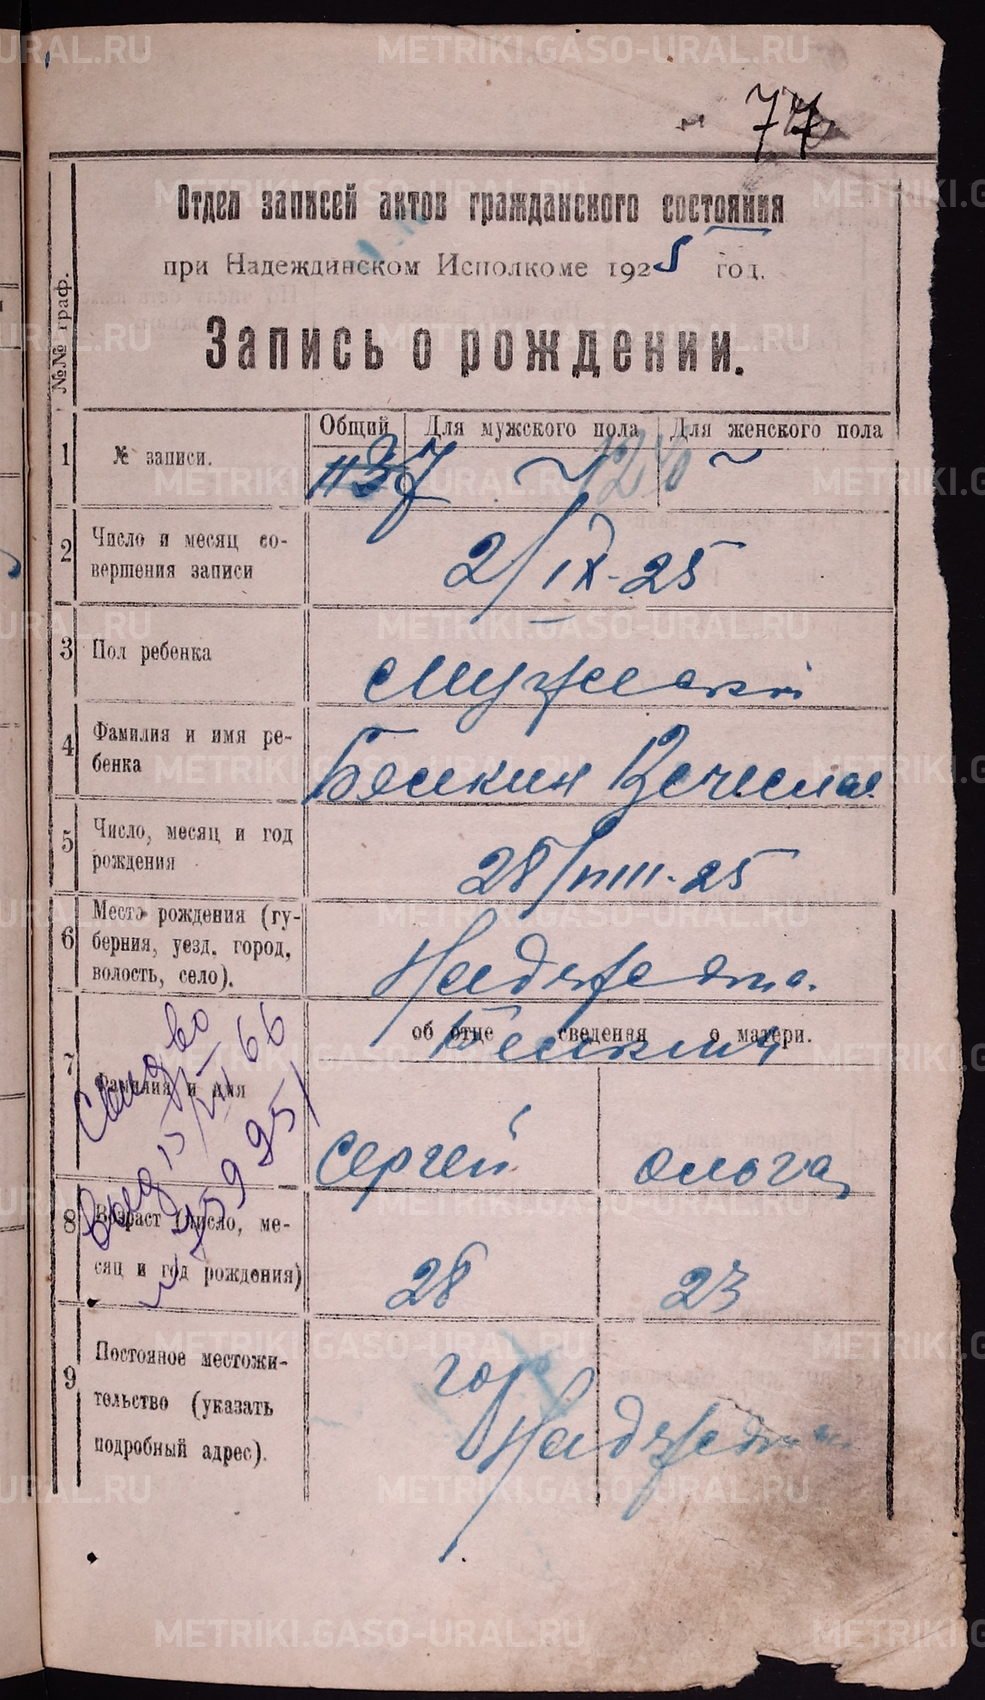 77
Отдел записей актов гражданского состояния
при Надеждинском Исполкоме 1925 год.
Запись о рождении.
№№ граф.
Общий Для мужского пола Для женского пола
1 № записи. 1137 ~ ~
2 Число и месяц со-
вершения записи
2/IX-25
3 Пол ребенка Мужской
4 Фамилия и имя ре-
бенка
5 Число, месяц и год
рождения
28/VIII-25
6 Место рождения (гу-
берния, уезд, город,
волость, село).
об отце сведения о матери.
7 Фамилия и имя
Сергей Ольга
8 Возраст (число, ме-
сяц и год рождения)
28 23
9 Постояное местожи-
тельство (указать
подробный адрес).
гор
METRIKI.GASO-URAL.RU